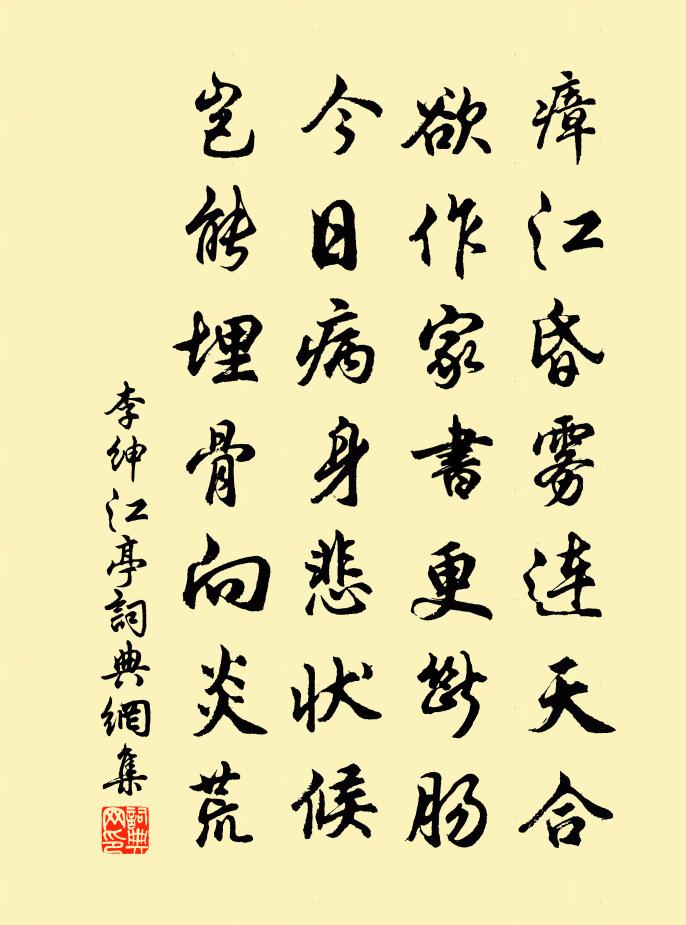 瘴江昏雾連天合
欲作家書更断腸
今日病身悲状候
岂能埋骨向炎荒
李绅江亭詞典網集
詞典网印